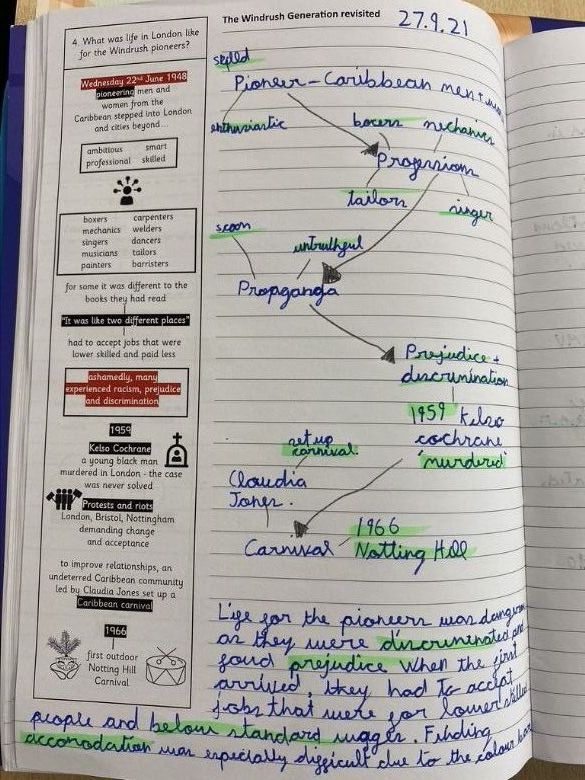 The Windrush Generation revisited
27.9.21
4. What was life in London like
for the Windrush pioneers?
Wednesday 22nd June 1948
pioneering men and
women from the
Caribbean stepped into London
and cities beyond...
ambitious smart
professional skilled
boxers carpenters
mechanics welders
singers dancers
musicians tailors
painters barristers
for some it was different to the
books they had read
"It was like two different places"
had to accept jobs that were
lower skilled and paid less
ashamedly, many
experienced racism, prejudice
and discrimination
1959
Kelso Cochrane
a young black man
murdered in London - the case
was never solved
Protests and riots
London, Bristol, Nottingham
demanding change
and acceptance
to improve relationships, an
undeterred Caribbean community
led by Claudia Jones set up a
Caribbean carnival
1966
first outdoor
Notting Hill
Carnival
skilled
Pioneer - Caribbean men +
enthusiastic
boxers mechanics
Professions
tailors
singer
scoon
untruthful
Propganga
Prejudice +
discrimination
1959 Kelso
cochrane
"murdered"
set up
carnival
Claudia
Jones
1966
Carnival Notting Hill
Life for the pioneers was
as they were discriminated and
faud prejudice when the first
arrived, they had to accept
jobs that were for lower skilled
people and below standard wages. Finding
accomodation was especially difficult due to the colour bar